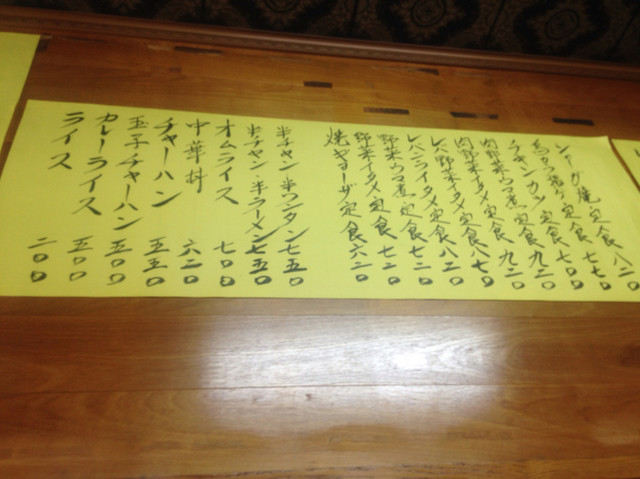 定食 八二〇
定食 七七〇
定食 七七〇
チキンカツ定食 九二〇
肉野菜ウマ煮定食 九二〇
肉野菜イタメ定食 八七〇
レバ野菜イタメ定食 八二〇
レバニライタメ定食 七二〇
野菜ウマ煮定食 七二〇
野菜イタメ定食 七二〇
焼ギョーザ定食 六二〇
半チャン・半ワンタン 七五〇
半チャン・半ラーメン 七五〇
オムライス 七〇〇
中華丼 六二〇
チャーハン 五五〇
玉子チャーハン 五五〇
カレーライス 五〇〇
ライス 二〇〇